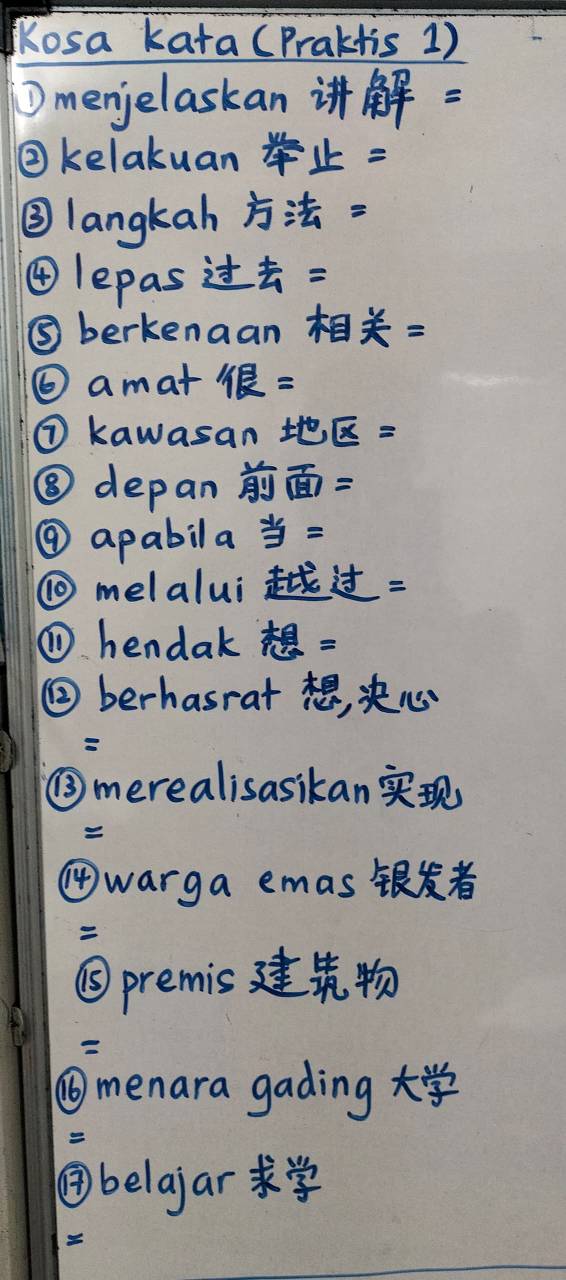 Kosa kata (Praktis 1)
① menjelaskan 讲解 =
② kelakuan 举止 =
③ langkah 方法 =
④ lepas 过去 =
⑤ berkenaan 相关 =
⑥ amat 很 =
⑦ kawasan 地区 =
⑧ depan 前面 =
⑨ apabila 当 =
⑩ melalui 越过 =
⑪ hendak 想 =
⑫ berhasrat 想,决心
=
⑬ merealisasikan 实现
=
⑭ warga emas 银发者
=
⑮ premis 建筑物
=
⑯ menara gading 大学
=
⑰ belajar 求学
=